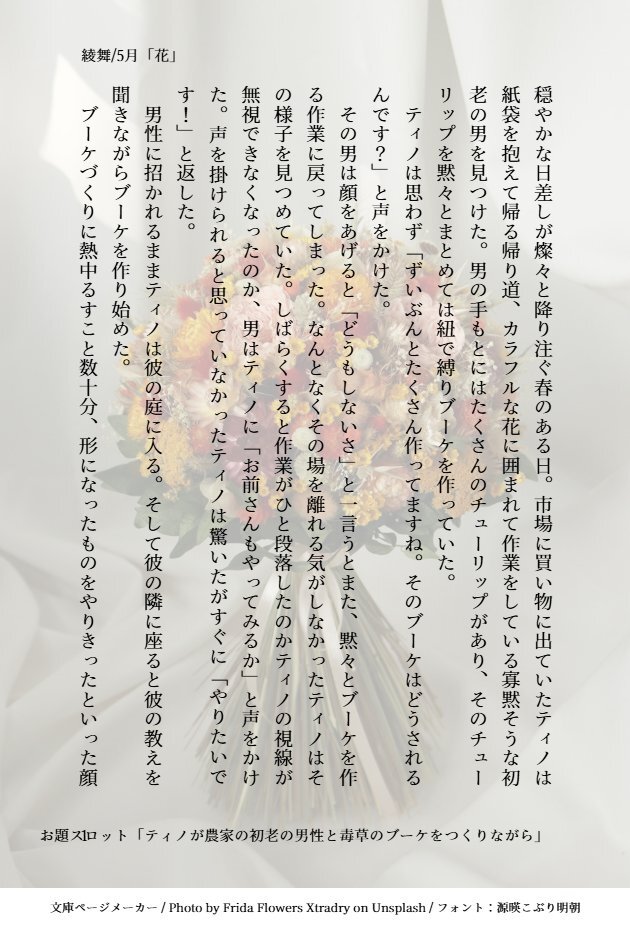 綾舞/5月「花」
穏やかな日差しが燦々と降り注ぐ春のある日。市場に買い物に出ていたティノは
紙袋を抱えて帰る帰り道、カラフルな花に囲まれて作業をしている寡黙そうな初
老の男を見つけた。男の手もとにはたくさんのチューリップがあり、そのチュー
リップを黙々とまとめては紐で縛りブーケを作っていた。
ティノは思わず「ずいぶんとたくさん作ってますね。そのブーケはどうされる
んです？」と声をかけた。
その男は顔をあげると「どうもしないさ」と一言うとまた、黙々とブーケを作
る作業に戻ってしまった。なんとなくその場を離れる気がしなかったティノはそ
の様子を見つめていた。しばらくすると作業がひと段落したのかティノの視線が
無視できなくなったのか、男はティノに「お前さんもやってみるか」と声をかけ
た。声を掛けられると思っていなかったティノは驚いたがすぐに「やりたいで
す！」と返した。
男性に招かれるままティノは彼の庭に入る。そして彼の隣に座ると彼の教えを
聞きながらブーケを作り始めた。
ブーケづくりに熱中るすこと数十分、形になったものをやりきったといった顔
お題スロット「ティノが農家の初老の男性と毒草のブーケをつくりながら」
1
文庫ページメーカー / Photo by Frida Flowers Xtradry on Unsplash / フォント：源暎こぶり明朝